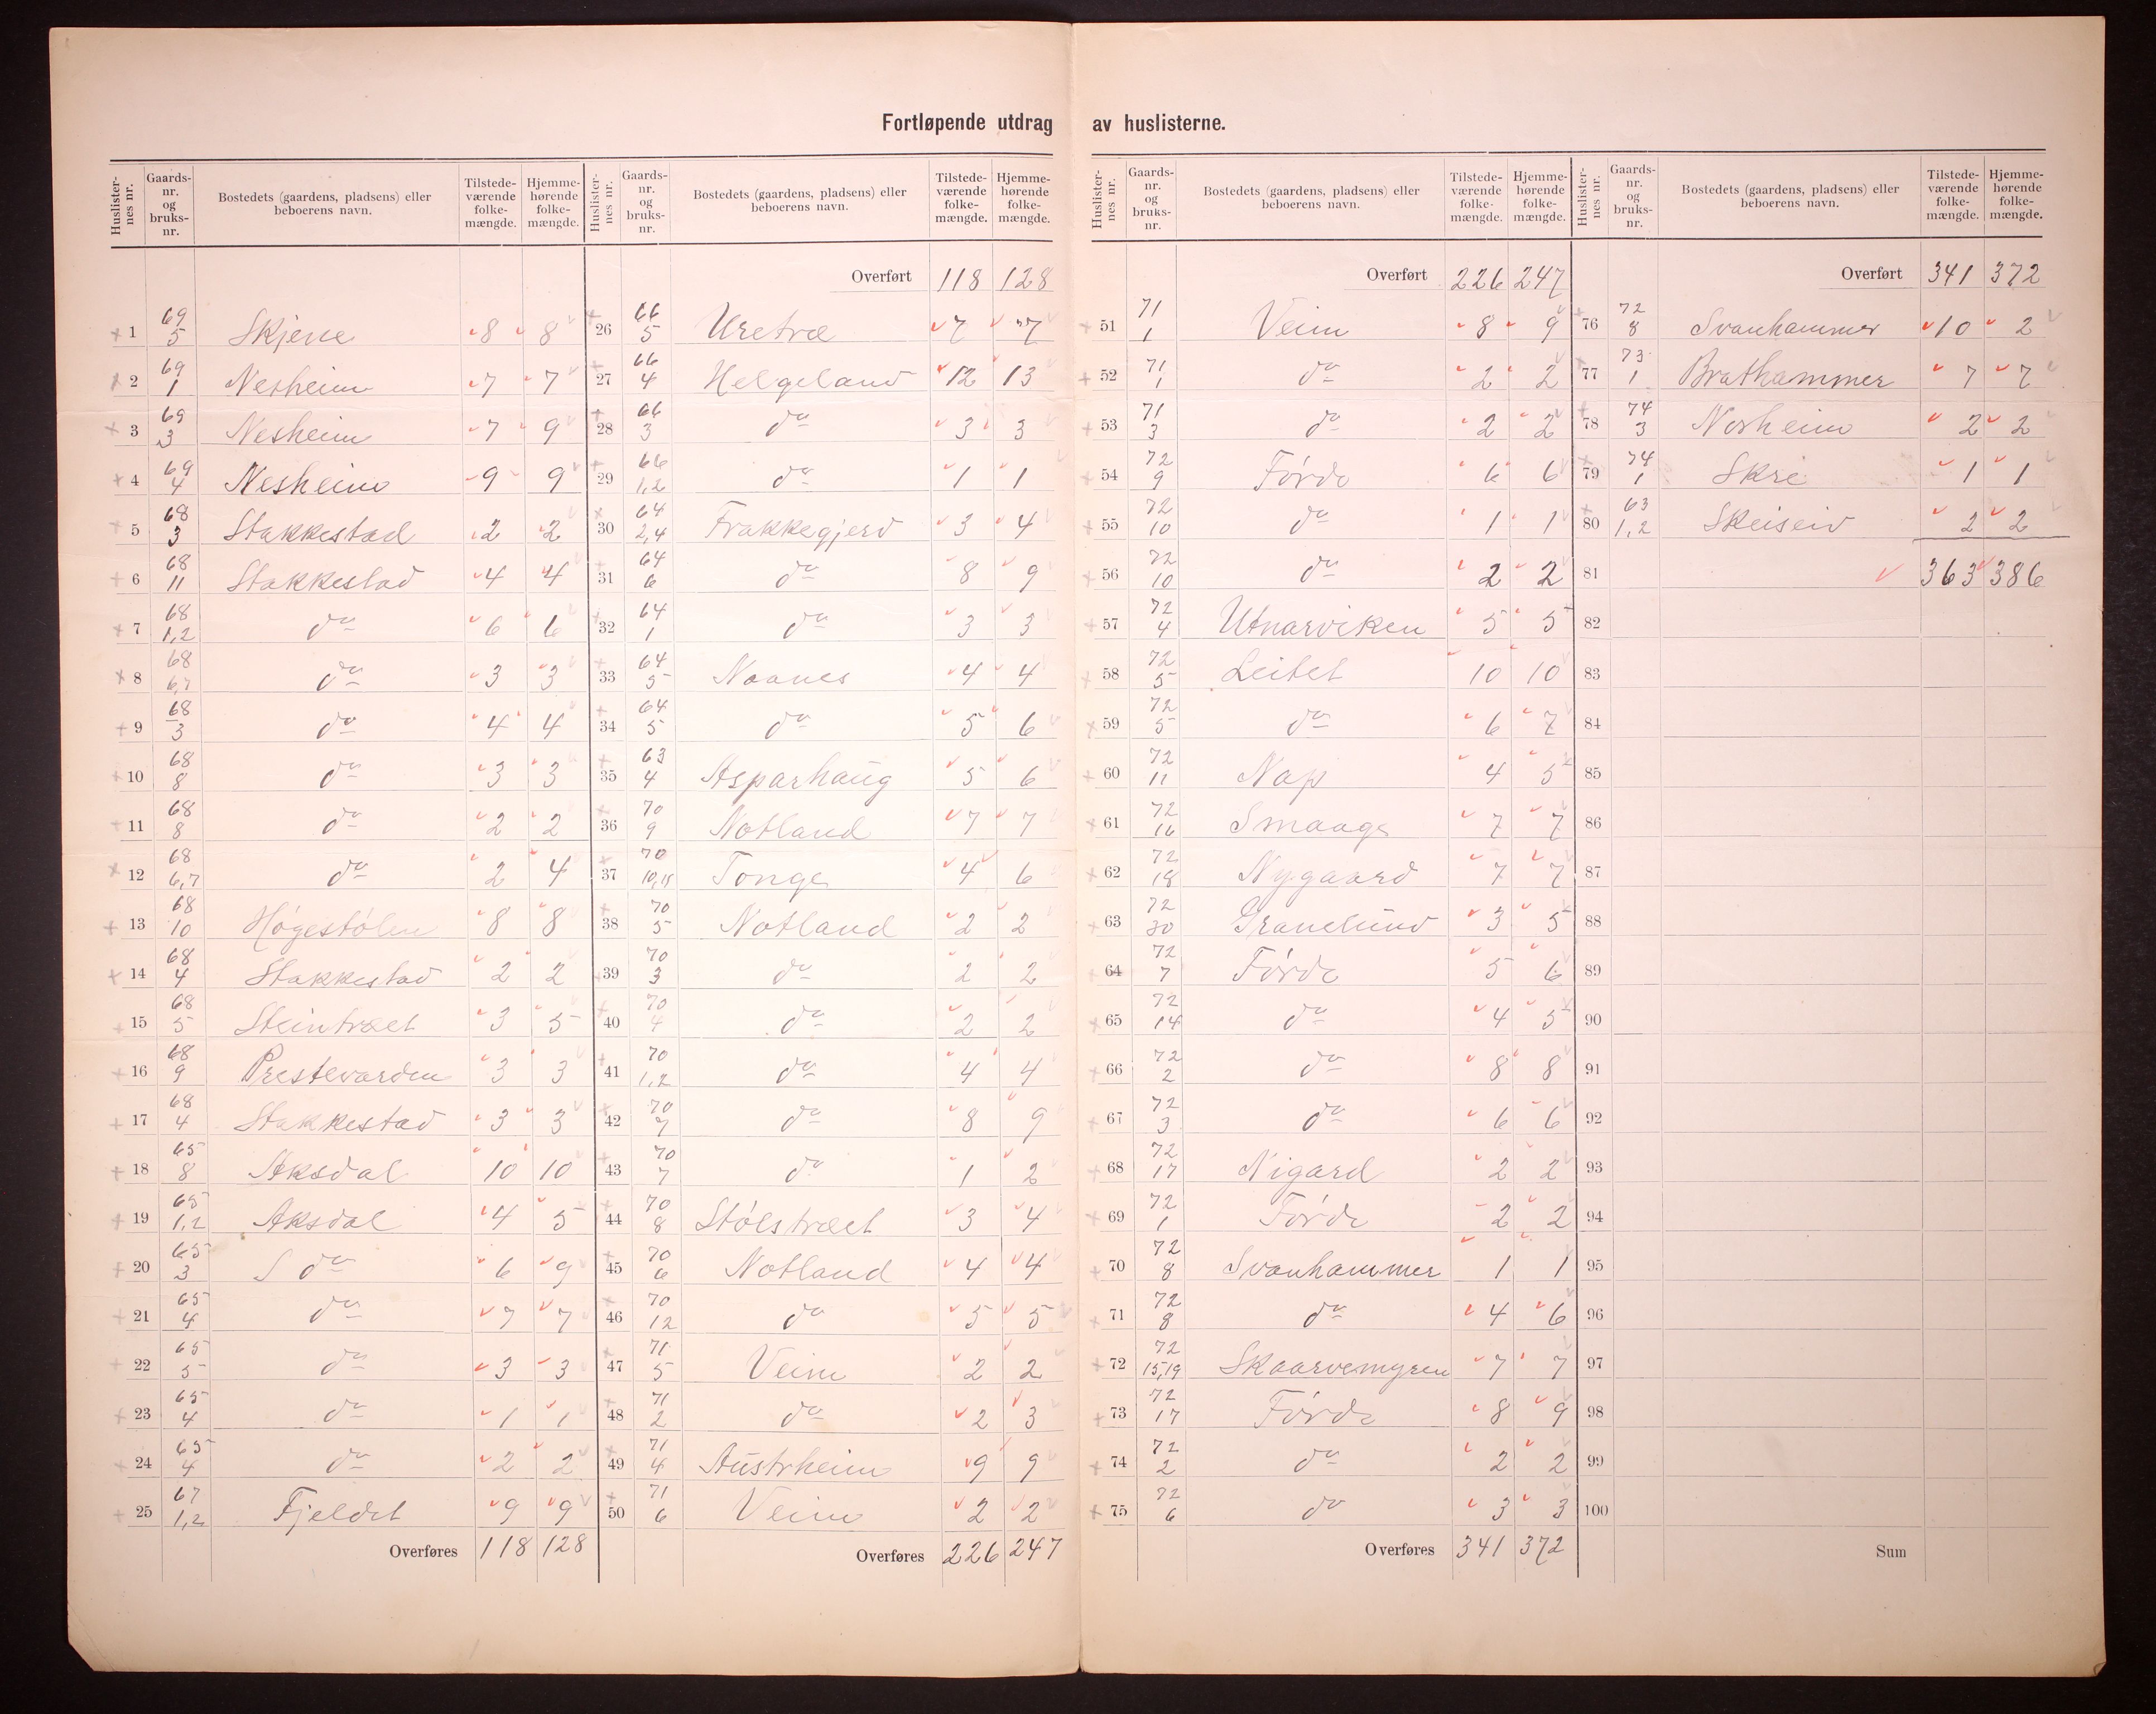 Fortløpende utdrag av huslisterne.
Huslisternes nr. | Gaardsnr. og bruksnr. | Bostedets (gaardens, pladsens) eller beboerens navn. | Tilstedeværende folkemængde. | Hjemmehørende folkemængde.
1 | 69 5 | Skjeve | 8 | 8
2 | 69 1 | Nesheim | 7 | 7
3 | 69 3 | Nesheim | 7 | 9
4 | 69 4 | Nesheim | 9 | 9
5 | 68 3 | Stakkestad | 2 | 2
6 | 68 11 | Stakkestad | 4 | 4
7 | 68 1,2 | do | 6 | 6
8 | 68 6,7 | do | 3 | 3
9 | 68 3 | do | 4 | 4
10 | 68 8 | do | 3 | 3
11 | 68 8 | do | 2 | 2
12 | 68 6,7 | do | 2 | 4
13 | 68 10 | Høgestølen | 8 | 8
14 | 68 4 | Stakkestad | 2 | 2
15 | 68 5 | Steintræet | 3 | 5
16 | 68 9 | Prestevarden | 3 | 3
17 | 68 4 | Stakkestad | 3 | 3
18 | 65 8 | Aksdal | 10 | 10
19 | 65 1,2 | Aksdal | 4 | 5
20 | 65 3 | do | 6 | 9
21 | 65 4 | do | 7 | 7
22 | 65 5 | do | 3 | 3
23 | 65 4 | do | 1 | 1
24 | 65 4 | do | 2 | 2
25 | 67 1,2 | Fjeldet | 9 | 9
Overføres | 118 | 128
Huslisternes nr. | Gaardsnr. og bruksnr. | Bostedets (gaardens, pladsens) eller beboerens navn. | Tilstedeværende folkemængde. | Hjemmehørende folkemængde.
Overført | 118 | 128
26 | 66 5 | Uretræ | 7 | 7
27 | 66 4 | Helgeland | 12 | 13
28 | 66 3 | do | 3 | 3
29 | 66 1,2 | do | 1 | 1
30 | 64 2,4 | Frakkegjerd | 3 | 4
31 | 64 6 | do | 8 | 9
32 | 64 1 | do | 3 | 3
33 | 64 5 | Naanes | 4 | 4
34 | 64 5 | do | 5 | 6
35 | 63 4 | Asparhaug | 5 | 6
36 | 70 9 | Notland | 7 | 7
37 | 70 | Tonge | 4 | 6
38 | 70 5 | Notland | 2 | 2
39 | 70 3 | do | 2 | 2
40 | 70 4 | do | 2 | 2
41 | 70 1,2 | do | 4 | 4
42 | 70 7 | do | 8 | 9
43 | 70 7 | do | 1 | 2
44 | 70 8 | Stølstræet | 3 | 4
45 | 70 6 | Notland | 4 | 4
46 | 70 12 | do | 5 | 5
47 | 71 5 | Veim | 2 | 2
48 | 71 2 | do | 2 | 3
49 | 71 4 | Austrheim | 9 | 9
50 | 71 6 | Veim | 2 | 2
Overføres | 226 | 247
Huslisternes nr. | Gaardsnr. og bruksnr. | Bostedets (gaardens, pladsens) eller beboerens navn. | Tilstedeværende folkemængde. | Hjemmehørende folkemængde.
Overført | 226 | 247
51 | 71 1 | Veim | 8 | 9
52 | 71 1 | do | 2 | 2
53 | 71 3 | do | 2 | 2
54 | 72 9 | Førde | 6 | 6
55 | 72 10 | do | 1 | 1
56 | 72 10 | do | 2 | 2
57 | 72 4 | Utnarviken | 5 | 5
58 | 72 5 | Leitet | 10 | 10
59 | 72 5 | do | 6 | 7
60 | 72 11 | Nap | 4 | 5
61 | 72 16 | Smaage | 7 | 7
62 | 72 18 | Nygaard | 7 | 7
63 | 72 20 | Granelund | 3 | 5
64 | 72 7 | Førde | 5 | 6
65 | 72 14 | do | 4 | 5
66 | 72 2 | do | 8 | 8
67 | 72 3 | do | 6 | 6
68 | 72 17 | Nigard | 2 | 2
69 | 72 1 | Førde | 2 | 2
70 | 72 8 | Svanhammer | 1 | 1
71 | 72 8 | do | 4 | 6
72 | 72 15,19 | Skaarvemyren | 7 | 7
73 | 72 17 | Førde | 8 | 9
74 | 72 2 | do | 2 | 2
75 | 72 6 | do | 3 | 3
Overføres | 341 | 372
Huslisternes nr. | Gaardsnr. og bruksnr. | Bostedets (gaardens, pladsens) eller beboerens navn. | Tilstedeværende folkemængde. | Hjemmehørende folkemængde.
Overført | 341 | 372
76 | 72 8 | Svanhammer | 10 | 2
77 | 73 1 | Brathammer | 7 | 7
78 | 74 3 | Norheim | 2 | 2
79 | 74 1 | Skre | 1 | 1
80 | 63 1,2 | Skeiseid | 2 | 2
81 | 363 | 386
82
83
84
85
86
87
88
89
90
91
92
93
94
95
96
97
98
99
100
Sum